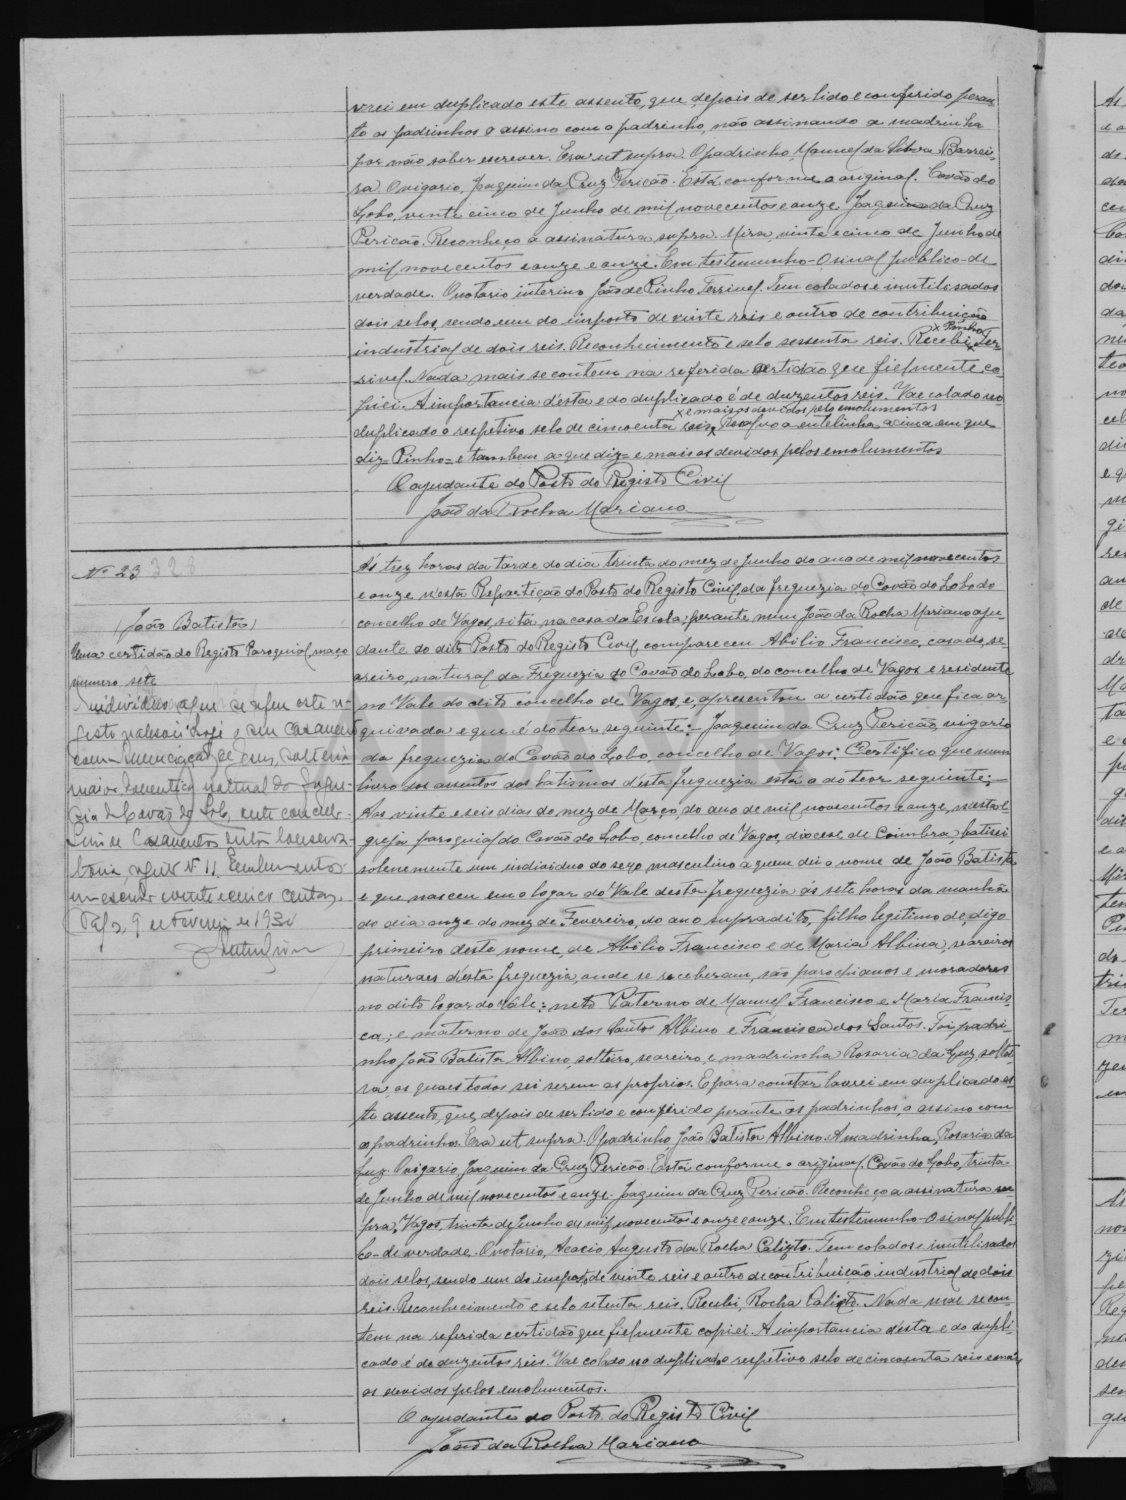 vrei em duplicado este assento, que depois de ser lido e conferido peran-
te os padrinhos o assino com o padrinho, não assinando a madrinha
por não saber escrever. Era ut supra. O padrinho, Manuel da Silva Barrei-
ra. O vigario, Joaquim da Cruz Pericão. Está conforme o original. Covão do
Lobo, vinte cinco de Junho de mil novecentos e onze. Joaquim da Cruz
Pericão. Reconheço a assinatura supra. Mira, vinte e cinco de Junho de
mil novecentos e onze e onze. Em testemunho - O sinal publico - de
verdade. O notario interino João de Pinho Terrivel. Tem colados e inutilisados
dois selos, sendo um do imposto de vinte reis e outro de contribuição
industrial de dois reis. Reconhecimento e selo sessenta reis. Recebi, x Pinho x Ter-
rivel. Nada mais se contem na referida certidão que fielmente co-
piei. A importancia d'esta e do duplicado é de duzentos reis. Vae colado no
x e mais os devidos pelos emolumentos
duplicado o respetivo selo de cincoenta reis x Resalvo a entelinha acima em que
diz = Pinho = e tambem a que diz = e mais os devidos pelos emolumentos
O ajudante do Posto do Registo Civil
João da Rocha Mariano
Nº 23 328
(João Batista)
Uma certidão do Registo Paroquial, maço
numero sete
O individuo a que se refere este re-
gisto
com Anunciação de Jesus, solteira
maior, domestica, natural da fregue-
zia de Covão do Lobo, neste concelho.
Livro de Casamentos desta Conserva-
toria Nº 11. Emolumentos
um escudo vinte e cinco centavos.
9 de Fevereiro de 1931
Ás trez horas da tarde do dia trinta do mez de Junho do ano de mil novecentos
e onze n'esta Repartição do Posto do Registo Civil da freguezia do Covão do Lobo do
concelho de Vagos, sita na casa da Escola, perante mim João da Rocha Mariano aju-
dante do dito Posto do Registo Civil compareceu Abilio Francisco, casado, se-
areiro, natural da Freguezia do Covão do Lobo, do concelho de Vagos e residente
no Vale do dito concelho de Vagos, e, apresentou a certidão que fica ar-
quivada e que é do teor seguinte: - Joaquim da Cruz Pericão, vigario
da freguezia do Covão do Lobo, concelho de Vagos: Certifico que num
livro dos assentos dos batismos d'esta freguezia está o do teor seguinte: -
Aos vinte e seis dias do mez de Março do ano de mil novecentos e onze, n'esta I-
greja paroquial do Covão do Lobo, concelho de Vagos, diocese de Coimbra, batisei
solenemente um individuo do sexo masculino a quem dei o nome de João Batista
e que nasceu em o logar do Vale desta freguezia ás sete horas da manhã
do dia onze do mez de Fevereiro, do ano supradito, filho legitimo de, digo
primeiro deste nome, de Abilio Francisco e de Maria Albina, seareiros
naturaes d'esta freguezia, onde se receberam, são parochianos e moradores
no dito logar do Vale: neto Paterno de Manuel Francisco e Maria Francis-
ca; e materno de João dos Santos Albino e Francisca dos Santos. Foi padri-
nho João Batista Albino, solteiro, seareiro, e madrinha Rosaria da Luz, soltei-
ra, os quaes todos sei serem os proprios. E para constar lavrei em duplicado es-
te assento, que, depois de ser lido e conferido perante os padrinhos, o assino com
o padrinho. Era ut supra. O padrinho, João Batista Albino. A madrinha, Rosaria da
Luz. O vigario Joaquim da Cruz Pericão. Está conforme o original. Covão do Lobo, trinta
de Junho de mil novecentos e onze. Joaquim da Cruz Pericão. Reconheço a assinatura su-
pra. Vagos, trinta de Junho de mil novecentos e onze e onze. Em testemunho - O sinal publi-
co - de verdade. O notario, Acacio Augusto da Rocha Calixto. Tem colados e inutilisados
dois selos, sendo um do imposto de vinte reis e outro de contribuição industrial de dois
reis. Reconhecimento e selo setenta reis. Recebi, Rocha Calixto. Nada mais se con-
tem na referida certidão que fielmente copiei. A importancia d'esta e do dupli-
cado é de duzentos reis. Vae colado no duplicado o respetivo selo de cincoenta reis e mais
os devidos pelos emolumentos.
O ajudante do Posto do Registo Civil
João da Rocha Mariano